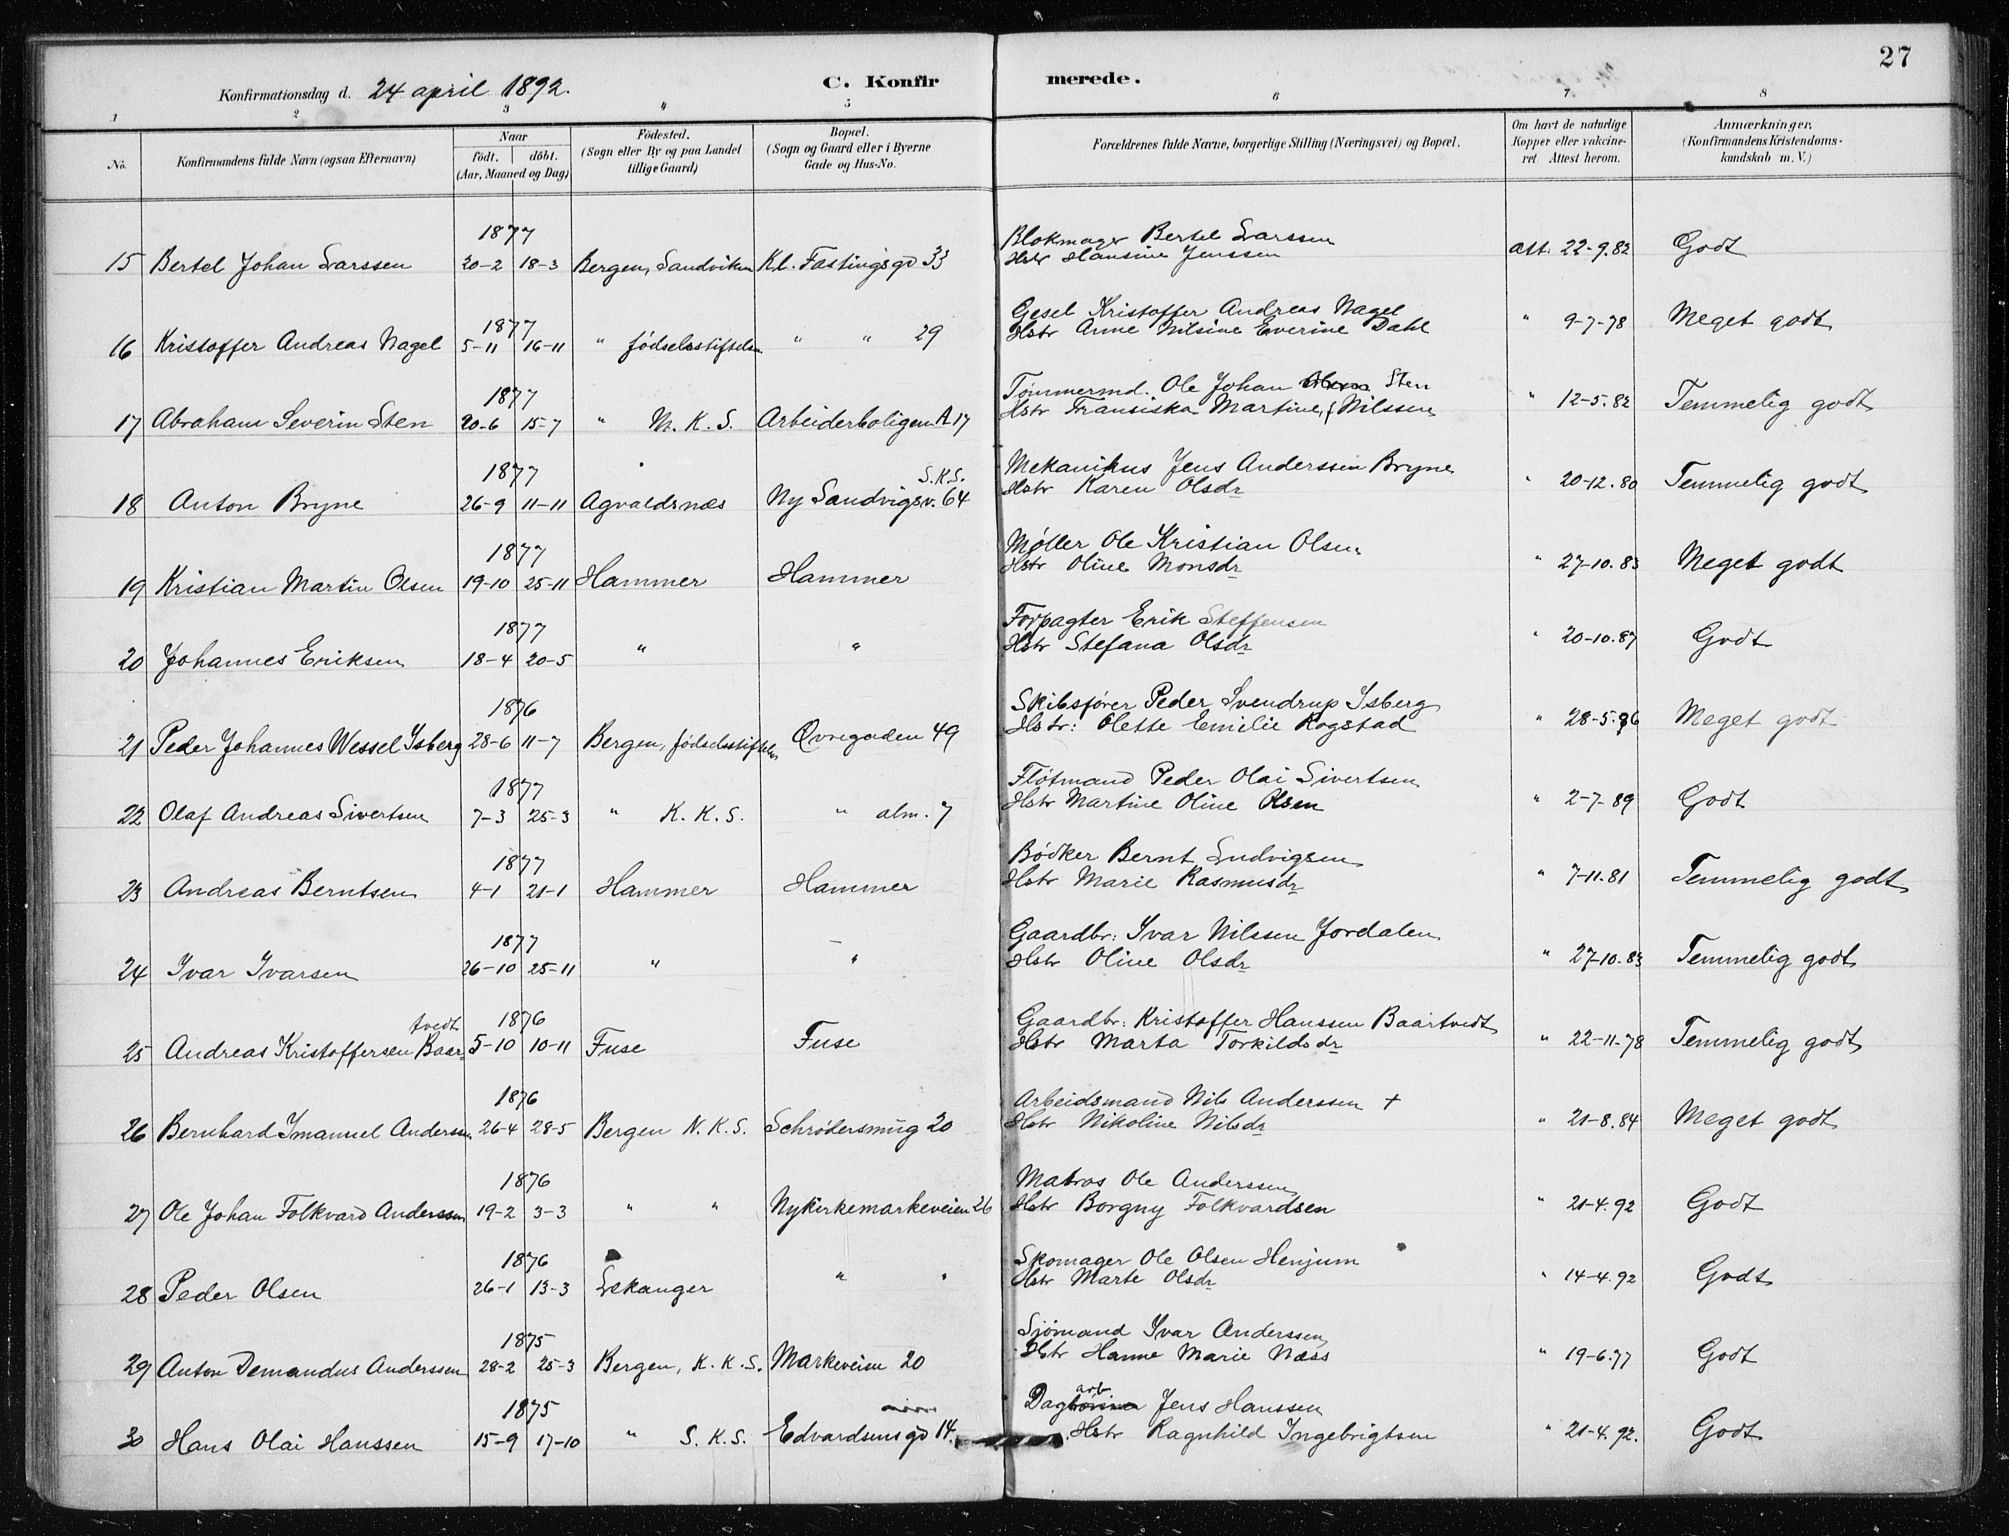 27
Konfirmationsdag d. 24 april 1892. C. Konfirmerede.
1 2 3 4 5 6 7 8
No. Konfirmandens fulde Navn (ogsaa Efternavn) Naar født. døbt. (Aar, Maaned og Dag) Fødested. (Sogn eller By og paa Landet tillige Gaard) Bopæl. (Sogn og Gaard eller i Byerne Gade og Hus-No. Forældrenes fulde Navne, borgerlige Stilling (Næringsvei) og Bopæl. Om havt de naturlige Kopper eller vakcineret. Attest herom. Anmærkninger. (Konfirmandens Kristendomskundskab m. V.)
1877 Blokmager Bertel Larssen
15 Bertel Johan Larssen 20-2 18-3 Bergen, Sandviken Kl. Fastingsgd 33 Hstr Hansine Jenssen att. 22-9.82 Godt
1877 Gesel Kristoffer Andreas Nagel
16 Kristoffer Andreas Nagel 5-11 16-11 " fødselsstiftelsen " " 29 Hstr Anne Nilsine Everine Dahl " 9-7-78 Meget godt
1877 Tømmermd. Ole Johan Sten
17 Abraham Severin Sten 20-6 15-7 " M. K. S. Arbeiderboligen A 17 Hstr Fransiska Martine, f Nilssen " 12-5.82 Temmelig godt
1877 S.K.S. Mekanikus Jens Anderssen Bryne
18 Anton Bryne 26-9 11-11 Agvaldsnæs Ny Sandvigsv. 64 Hstr Karen Olsdr " 20-12.80 Temmelig godt
1877 Møller Ole Kristian Olsen
19 Kristian Martin Olsen 19-10 25-11 Hammer Hammer Hstr Oline Monsdr " 27-10.83 Meget godt
1877 Forpagter Erik Steffensen
20 Johannes Eriksen 18-4 20-5 " " Hstr Stefana Olsdr " 20-10.87 Godt
1876 Skibsfører Peder Svendrup Isberg
21 Peder Johannes Wessel Isberg 28-6 11-7 Bergen, fødselsstiftelsen Øvregaden 49 Hstr: Olette Emilie Rogstad " 28-5. Meget godt
1877 Fløtmand Peder Olai Sivertsen
22 Olaf Andreas Sivertsen 7-3 25-3 " K. K. S. " alm. 7 Hstr Martine Oline Olsen " 2-7-89 Godt
1877 Bødker Bernt Ludvigsen
23 Andreas Berntsen 4-1 21-1 Hammer Hammer Hstr Marie Rasmusdr " 7-11.81 Temmelig godt
1877 Gaardbr: Ivar Nilssen Jordalen
24 Ivar Ivarsen 26-10 25-11 " " Hstr Oline Olsdr " 27-10.83 Temmelig godt
tvedt 1876 Gaardbr: Kristoffer Hanssen Baartvedt
25 Andreas Kristoffersen Baar- 5-10 10-11 Fuse Fuse Hstr Marta Torkildsdr " 22-11-78 Temmelig godt
1876 Arbeidsmand Nils Anderssen +
26 Bernhard Imanuel Anderssen 26-4 28-5 Bergen N. K. S. Schrødersmug 20 Hstr Nikoline Nilsdr " 21-8.84 Meget godt
1876 Matros Ole Anderssen
27 Ole Johan Folkvard Anderssen 19-2 3-3 " " Nykirkemarkeveien 26 Hstr Borgny Folkvardsen " 21-4.92 Godt
1876 Skomager Ole Olsen Henjum
28 Peder Olsen 26-1 13-3 Lekanger " " Hstr Marte Olsdr " 14-4.92 Godt
1875 Sjømand Ivar Anderssen
29 Anton Demandus Anderssen 28-2 25-3 Bergen, K. K. S. Markeveien 20 Hstr Hanne Marie Næss " 19-6.77 Godt
1875 Dagarb. Jens Hanssen
30 Hans Olai Hanssen 15-9 17-10 " S. K. S. Edvardsensgd 14. Hstr Ragnhild Ingebrigtsen " 21-4.92. Godt